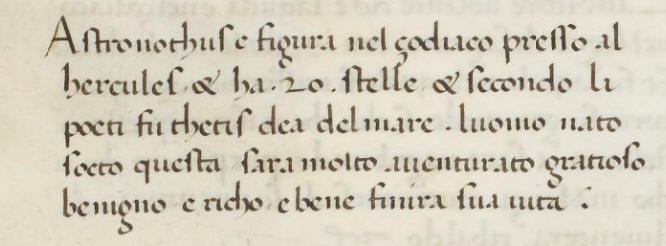 Astronothus e figura nel çodiaco presso al
hercules, & ha .20. stelle & secondo li
poeti fu thetis dea del mare. luomo nato
socto questa sara molto auenturato gratioso
benigno e richo, e bene finira sua uita .